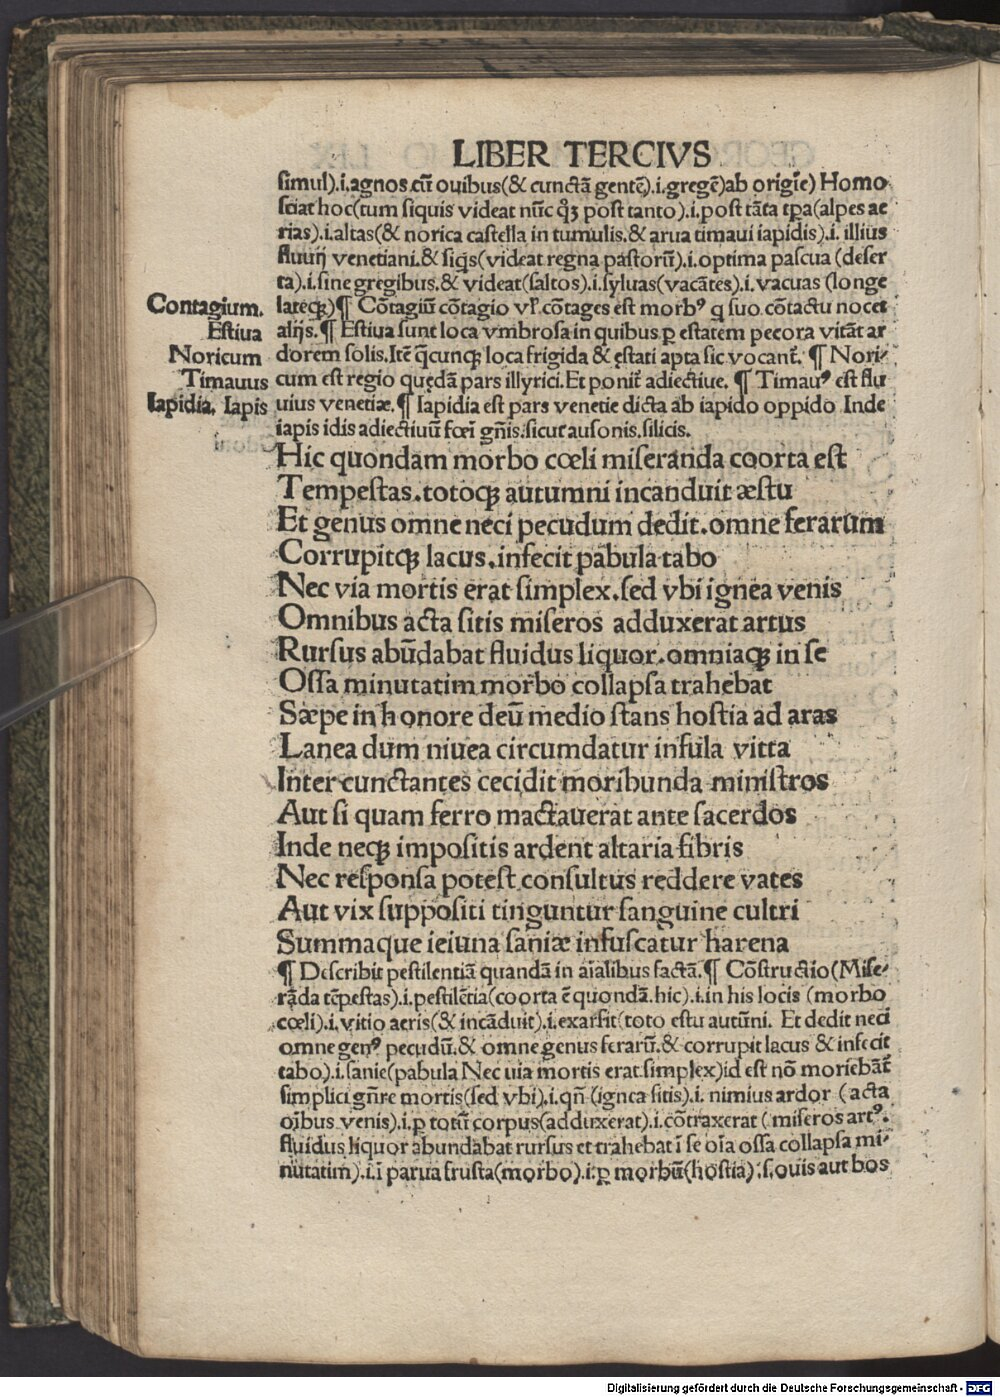 LIBER TERCIVS
simul).i.agnos.cū ouibus(& cunctā gentē).i.gregē)ab origīe) Homo
sciat hoc(tum siquis videat nūc qꝫ post tanto).i.post tāta tꝑa(alpes ae
rias).i.altas(& norica castella in tumulis.& arua timaui iapidis).i. illius
fluuij venetiani.& siq̄s(videat regna pastorū).i.optima pascua (deser
ta).i.sine gregibus.& videat(saltos).i.syluas(vacātes).i.vacuas (longe
lateqꝫ)¶ Cōtagiū cōtagio vl' cōtages est morbꝰ q suo cōtactu nocet
alijs.¶ Estiua sunt loca vmbrosa in quibus ꝑ estatem pecora vitāt ar
dorem solis.Itē q̄cunqꝫ loca frigida & ęstati apta sic vocant᷑. ¶ Nori⸗
cum est regio quędā pars illyrici.Et ponit᷑ adiectiue. ¶ Timauꝰ est flu
uius venetiæ.¶ Iapidia est pars venetie dicta ab iapido oppido Inde
iapis idis adiectiuū foēi gn̄is.sicut ausonis.silicis.
Contagium.
Estiua
Noricum
Timauus
Iapidia. Iapis
Hic quondam morbo cœli miseranda coorta est
Tempestas.totoqꝫ autumni incanduit æstu
Et genus omne neci pecudum dedit.omne ferarum
Corrupitqꝫ lacus.infecit pabula tabo
Nec via mortis erat simplex.sed vbi ignea venis
Omnibus acta sitis miseros adduxerat artus
Rursus abūdabat fluidus liquor.omniaqꝫ in se
Ossa minutatim morbo collapsa trahebat
Sæpe in honore deū medio stans hostia ad aras
Lanea dum niuea circumdatur infula vitta
Inter cunctantes cecidit moribunda ministros
Aut si quam ferro mactauerat ante sacerdos
Inde neqꝫ impositis ardent altaria fibris
Nec responsa potest consultus reddere vates
Aut vix suppositi tinguntur sanguine cultri
Summaque ieiuna saniæ infuscatur harena
¶ Describit pestilentiā quandā in aīalibus factā.¶ Cōstructio(Mise⸗
rāda tēpestas).i.pestilētia(coorta ē quondā.hic).i.in his locis (morbo
cœli).i.vitio aeris(& incāduit).i.exarsit(toto estu autūni. Et dedit neci
omne genꝰ pecudū.& omne genus ferarū.& corrupit lacus & infecit
tabo).i.sanie(pabula Nec uia mortis erat simplex)id est nō moriebāt᷑
simplici gn̄re mortis(sed vbi).i.qn̄ (ignea sitis).i. nimius ardor (acta
oībus venis).i.ꝑ totū corpus(adduxerat).i.cōtraxerat (miseros artꝰ.
fluidus liquor abundabat rursus et trahebat ī se oīa ossa collapsa mi⸗
nutatim).i.ī parua frusta(morbo).i.ꝑ morbū(hostia).s.ouis aut bos
Digitalisierung gefördert durch die Deutsche Forschungsgemeinschaft - DFG